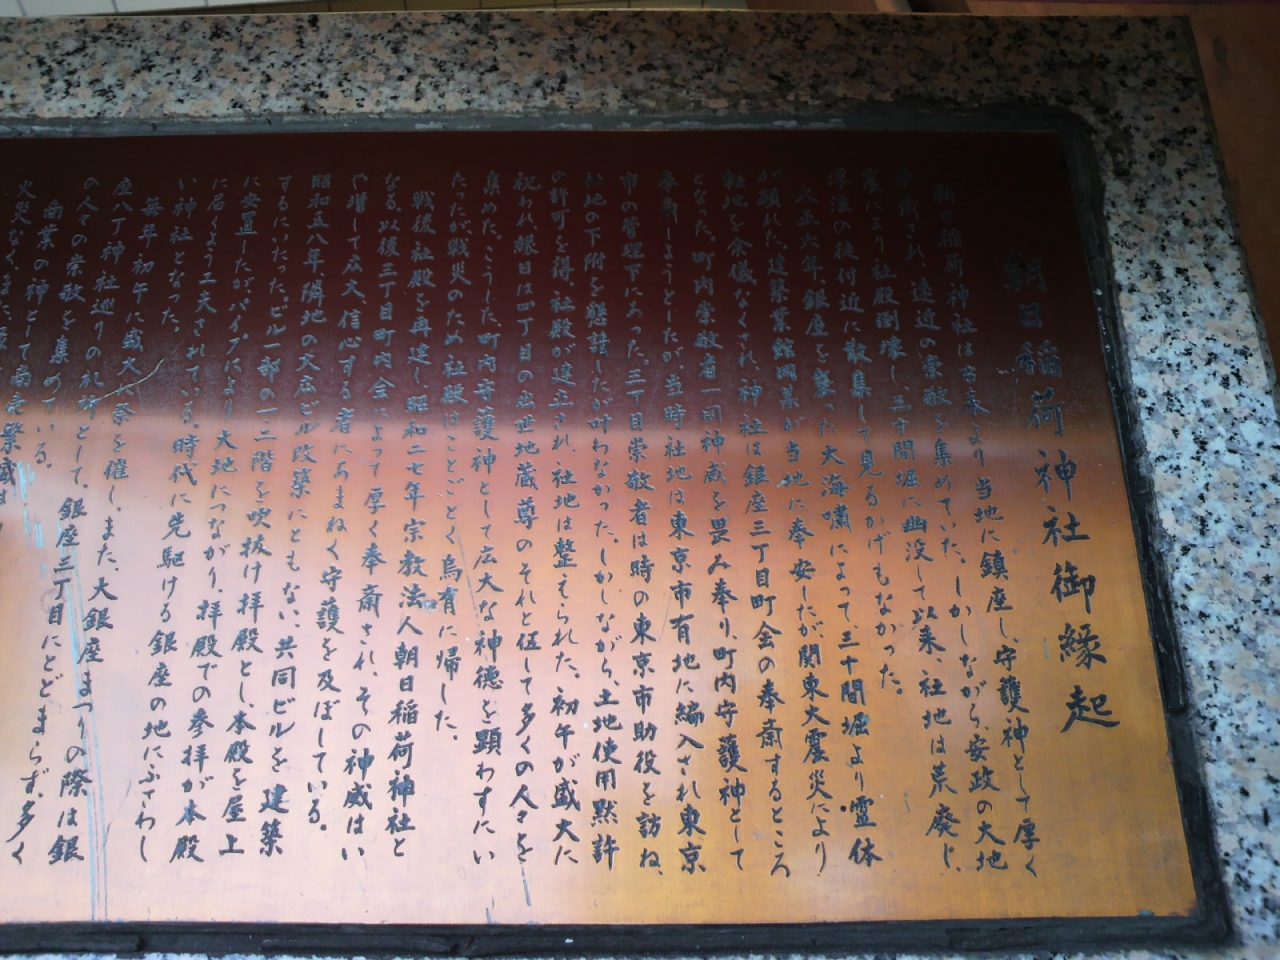 朝日稲荷神社御縁起
朝日稲荷神社は古来より当地に鎮座し、守護神として厚く
奉斎され、遠近の崇敬を集めていた。しかしながら、安政の大地
震により社殿倒壊し、三十間堀に幽没して以来、社地は荒廃し、
浮浪の徒付近に散集して見るかげもなかった。
大正六年、銀座を襲った大海嘯によって、三十間堀より霊体
が顕れた。建築業館岡某が当地に奉安したが、関東大震災により
転地を余儀なくされ、神社は銀座三丁目町会の奉斎するところ
となった。町内崇敬者一同神威を畏み奉り、町内守護神として
奉斎しようとしたが、当時社地は東京市有地に編入され東京
市の管理下にあった。三丁目崇敬者は時の東京市助役を訪ね、
社地の下附を懇請したが叶わなかった。しかしながら、土地使用黙許
の許可を得、社殿が建立され、社地は整えられた。初午が盛大に
祝われ、縁日は四丁目の出世地蔵尊のそれと伍して多くの人々を
集めた。こうした、町内守護神として広大な神徳を顕わすにい
たったが、戦災のため社殿はことごとく烏有に帰した。
戦後社殿を再建し、昭和二七年宗教法人朝日稲荷神社と
なる。以後三丁目町内会によって厚く奉斎され、その神威はい
や増して広大、信心する者にあまねく守護を及ぼしている。
昭和五八年、隣地の大広ビル改築にともない、共同ビルを建築
するにいたった。ビル一部の一二階を吹抜け拝殿とし、本殿を屋上
に安置したがパイプにより大地につながり、拝殿での参拝が本殿
に届くよう工夫されている。時代に先駆ける銀座の地にふさわし
い神社となった。
毎年初午に盛大な祭を催し、また、大銀座まつりの際は銀
座八丁神社巡りの札所として、銀座三丁目にとどまらず、多く
の人々の崇敬を集めている。
商業の神として商売繁盛は
火災なく、また